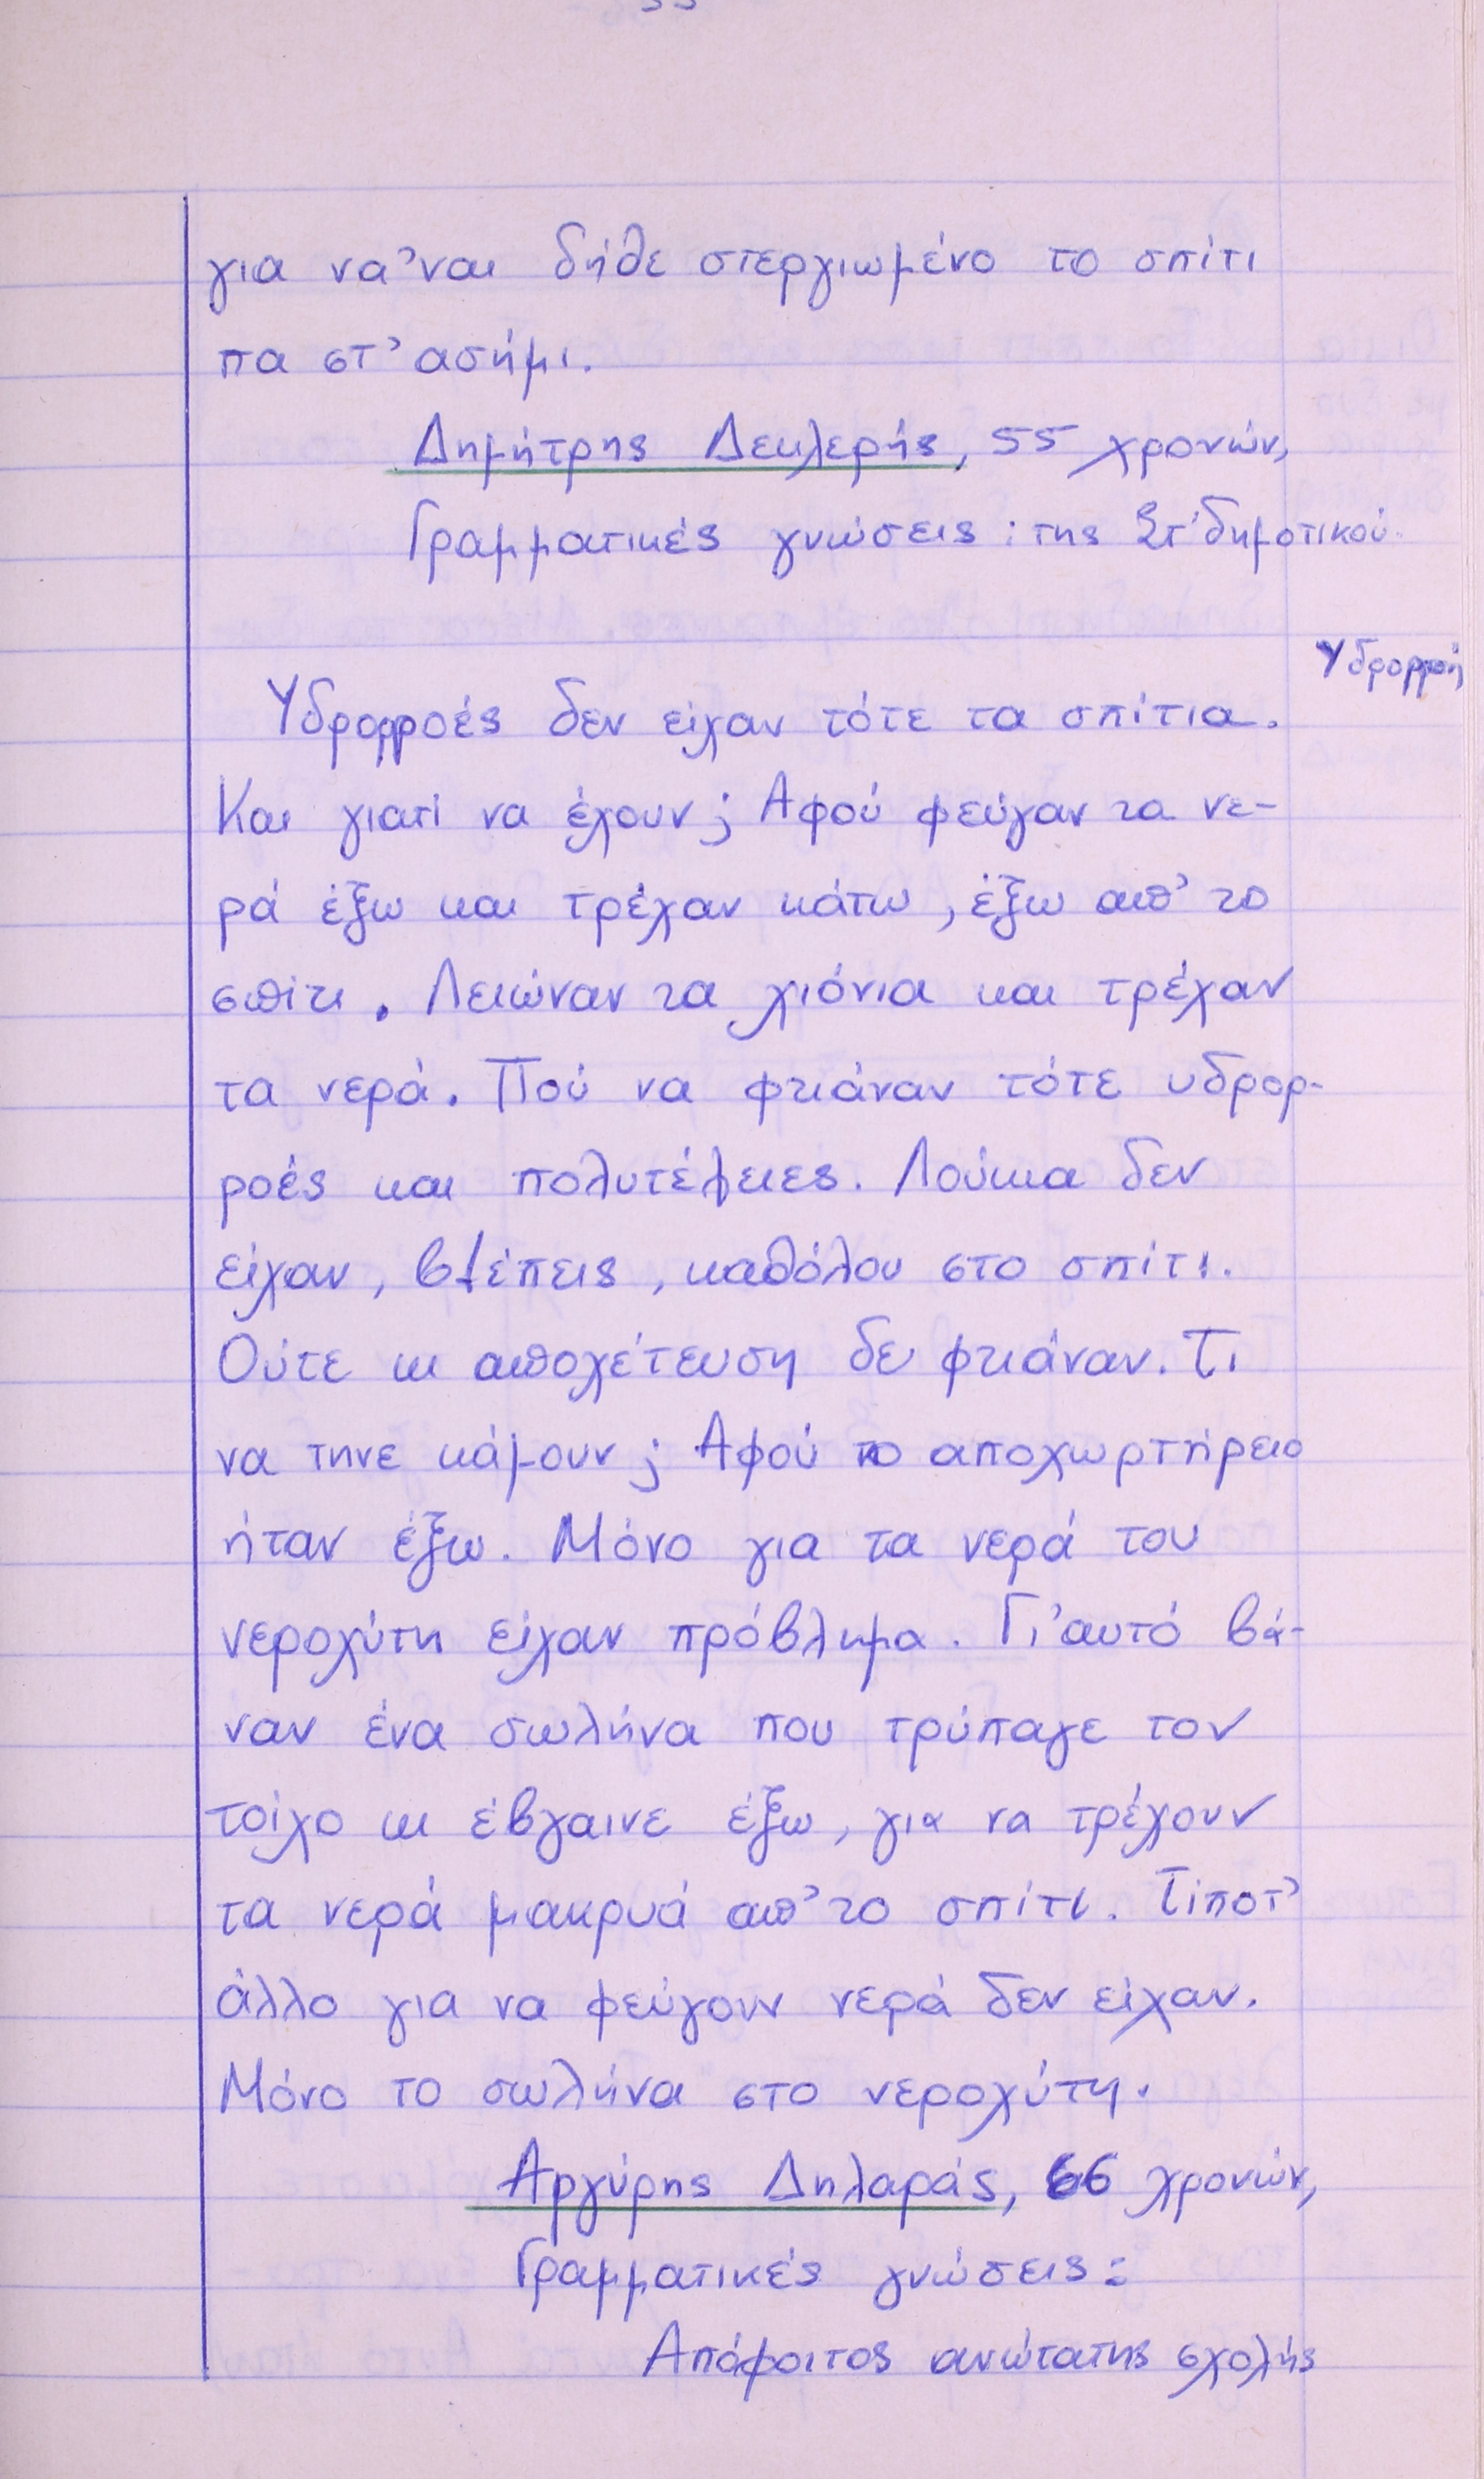 για να'ναι δήθε στεργιωμένο το σπίτι
πα στ' ασήμι.
Δημήτρης Δεκλερής, 55 χρονών,
Γραμματικές γνώσεις: της Στ' δημοτικού.
Υδρορροή
Υδρορροές δεν είχαν τότε τα σπίτια.
Και γιατί να έχουν; Αφού φεύγαν τα νε-
ρά έξω και τρέχαν κάτω, έξω απ' το
σπίτι. Λειώναν τα χιόνια και τρέχαν
τα νερά. Πού να φτιάναν τότε υδρορ-
ροές και πολυτέλειες. Λούκια δεν
είχαν, βλέπεις, καθόλου στο σπίτι.
Ούτε κι αποχέτευση δε φτιάναν. Τι
να τηνε κάμουν; Αφού το αποχωρτήρειο
ήταν έξω. Μόνο για τα νερά του
νεροχύτη είχαν πρόβλημα. Γι'αυτό βά-
ναν ένα σωλήνα που τρύπαγε τον
τοίχο κι έβγαινε έξω, για να τρέχουν
τα νερά μακρυά απ' το σπίτι. Τίποτ'
άλλο για να φεύγουν νερά δεν είχαν.
Μόνο το σωλήνα στο νεροχύτη.
Αργύρης Δηλαράς, 66 χρονών,
Γραμματικές γνώσεις:
Απόφοιτος ανώτατης σχολής